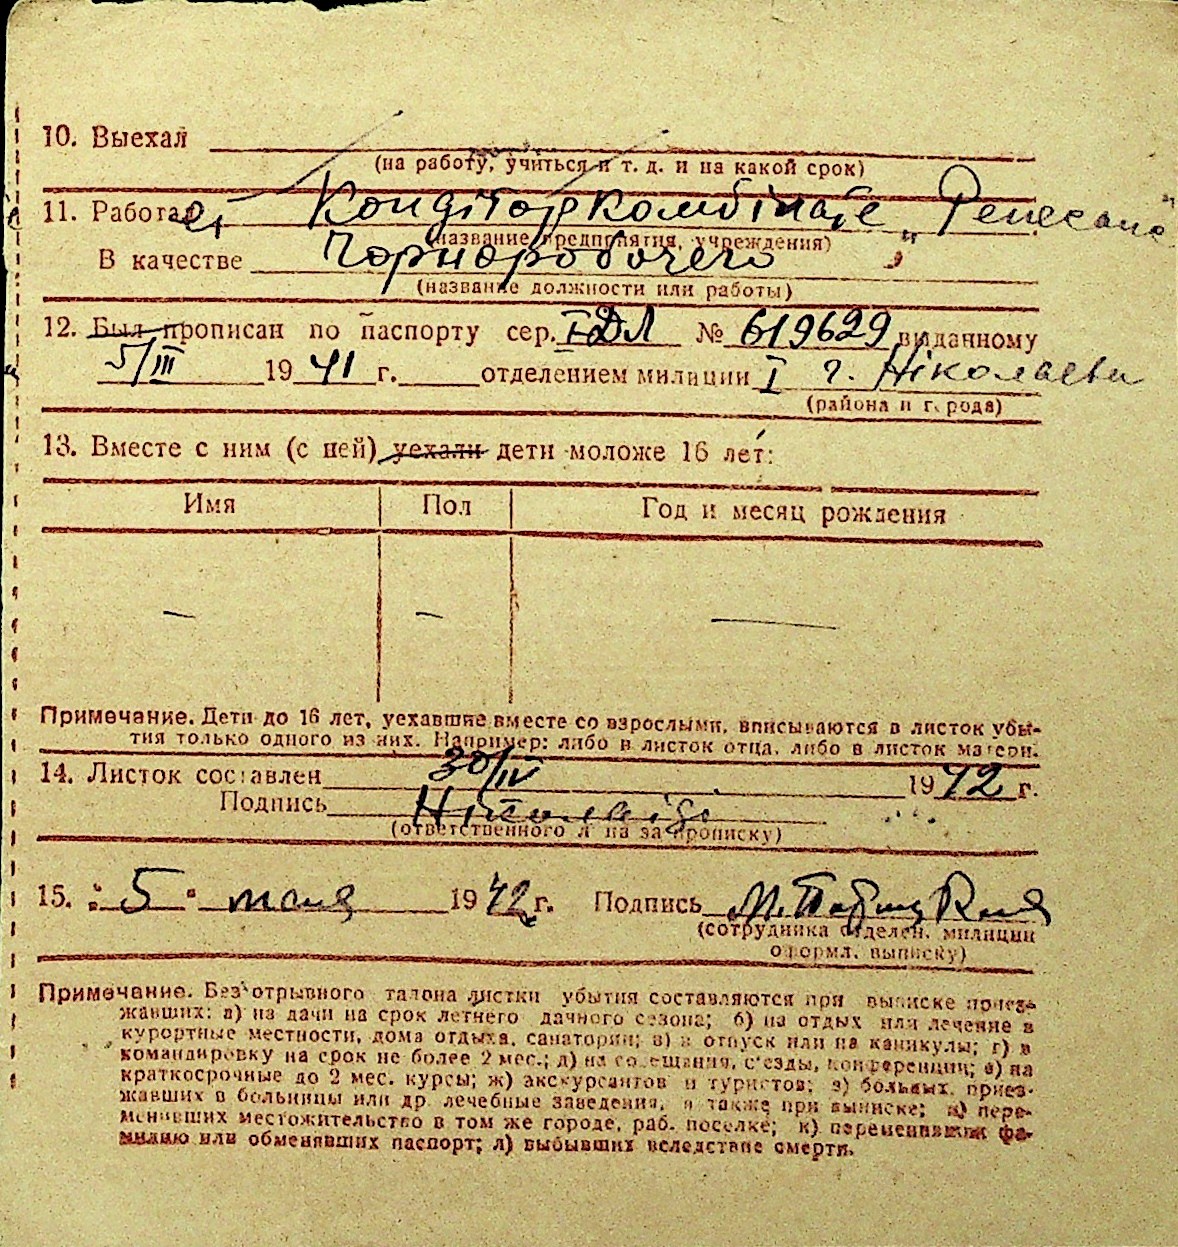 10. Выехал
(на работу, учиться и т. д. и на какой срок)
11. Работает Кондіторкомбінате „Ренесанс"
(название предприятия, учреждения)
В качестве Чорноробочего
(название должности или работы)
12. Был прописан по паспорту сер. I-ДЛ № 619629 выданному
5/III 1941 г. отделением милиции I г. Ніколаева
(района и города)
13. Вместе с ним (с ней) уехали дети моложе 16 лет:
Имя Пол Год и месяц рождения
— — —
Примечание. Дети до 16 лет, уехавшие вместе со взрослыми, вписываются в листок убы-
тия только одного из них. Например: либо в листок отца, либо в листок матери.
14. Листок составлен 30/IV 1942 г.
Подпись
(ответственного л на за прописку)
15. „5" мая 1942 г. Подпись
(сотрудника отделен. милиции
оформл. выписку)
Примечание. Без отрывного талона листки убытия составляются при выписке приез-
жавших: а) на дачи на срок летнего дачного сезона; б) на отдых или лечение в
курортные местности, дома отдыха, санатории; в) в отпуск или на каникулы; г) в
командировку на срок не более 2 мес.; д) на совещания, с'езды, конференции; е) на
краткосрочные до 2 мес. курсы; ж) экскурсантов и туристов; з) больных, приез-
жавших в больницы или др. лечебные заведения, а также при выписке; и) пере-
менивших местожительство в том же городе, раб. поселке; к) переменивших фа-
милию или обменявших паспорт; л) выбывших вследствие смерти.